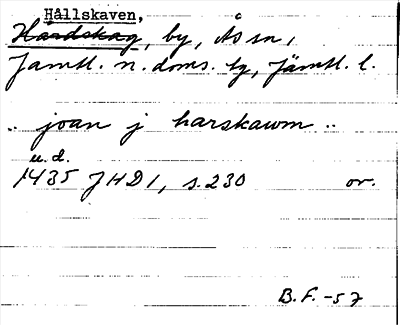 Hållskaven,
Hårdskag, by, Ås sn,
Jämtl. n. doms. bg, Jämtl. l.
.. joan j harskawm ..
u.d.
1435 JHD1, s. 230 or.
B.F. -57